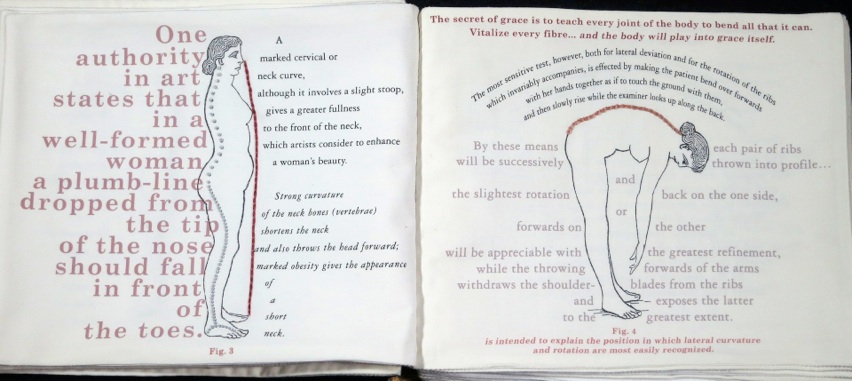 One
authority
in art
states that
in a
well-formed
woman
a plumb-line
dropped from
the tip
of the nose
should fall
in front
of
the toes.
A
marked cervical or
neck curve,
although it involves a slight stoop,
gives a greater fullness
to the front of the neck,
which artists consider to enhance
a woman's beauty.
Strong curvature
of the neck bones (vertebrae)
shortens the neck
and also throws the head forward;
marked obesity gives the appearance
of
a
short
neck.
Fig. 3
The secret of grace is to teach every joint of the body to bend all that it can.
Vitalize every fibre... and the body will play into grace itself.
The most sensitive test, however, both for lateral deviation and for the rotation of the ribs
which invariably accompanies, is effected by making the patient bend over forwards
with her hands together as if to touch the ground with them,
and then slowly rise while the examiner looks up along the back.
By these means each pair of ribs
will be successively thrown into profile...
and
the slightest rotation back on the one side,
or
forwards on the other
will be appreciable with the greatest refinement,
while the throwing forwards of the arms
withdraws the shoulder- blades from the ribs
and exposes the latter
to the greatest extent.
Fig. 4
is intended to explain the position in which lateral curvature
and rotation are most easily recognized.